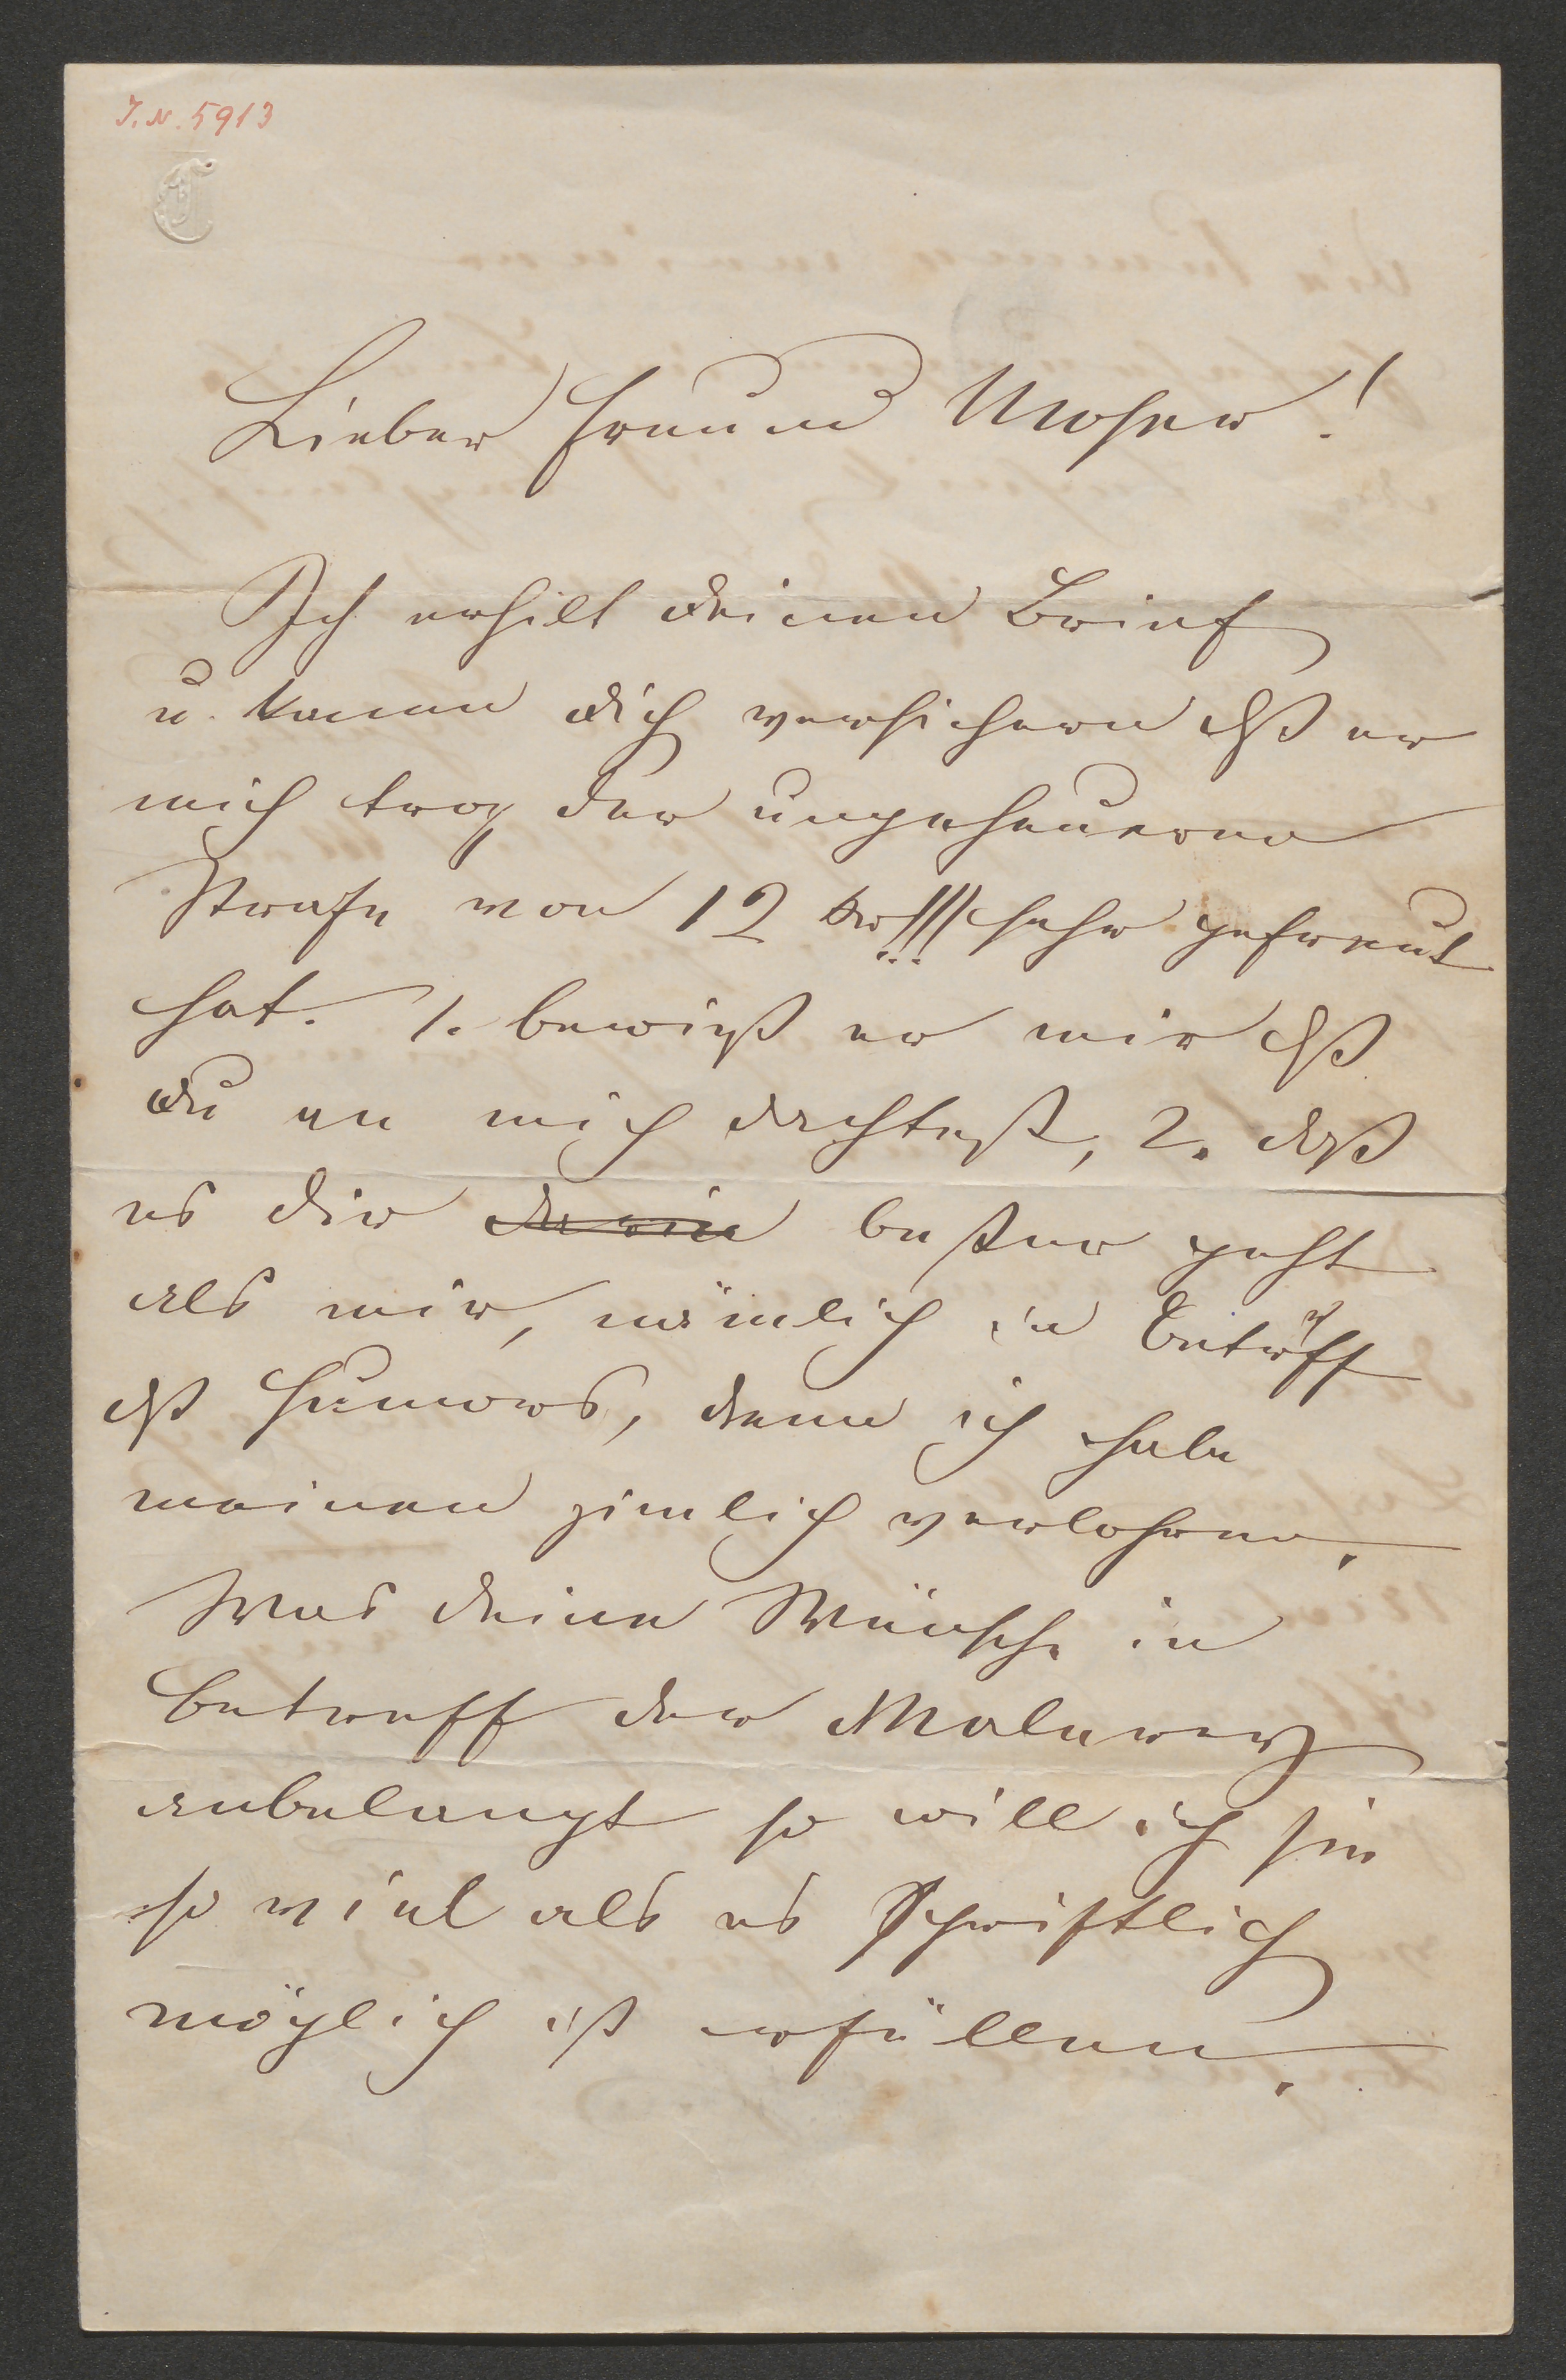 J. N. 5913
Lieber Freund Moser!
Ich erhilt deinen Brief
u. kanan dich versichern dß er
mich troz der ungeheueren
Strafe von 12 kr!!! sehr gefreut
hat. 1. bewieß er mir dß
du an mich dachtest, 2. daß
es dir besser geht
als mir, nämlich in Betreff
dß Humors, denn ich habe
meinen zimlich verlohren.
Was deine Wünsche in
Betreff der Malerey
anbelangt so will ich sie
so viel als es Schriftlich
möglich ist erfüllen.